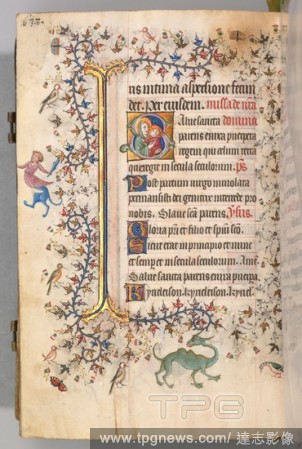 ns intima aspersione fecun
det. Per eiusdem. missa de
Salue sancta
parens enixa puerpera
regem qui celum terra
que regit in secula seculorum. ps
Post partum uirgo inuiolata
permansisti dei genetrix intercede pro
nobis. Salue sca parens.
Gloria pri et filio et spui sco.
Sicut erat in principio et nunc
et semper in secula seculorum. Ame
Salue sancta parens enixa puerpa.
Kyrieleison. Kyrieleison. kyriel.
TPG
www.tpgnews.com/ 達志影像